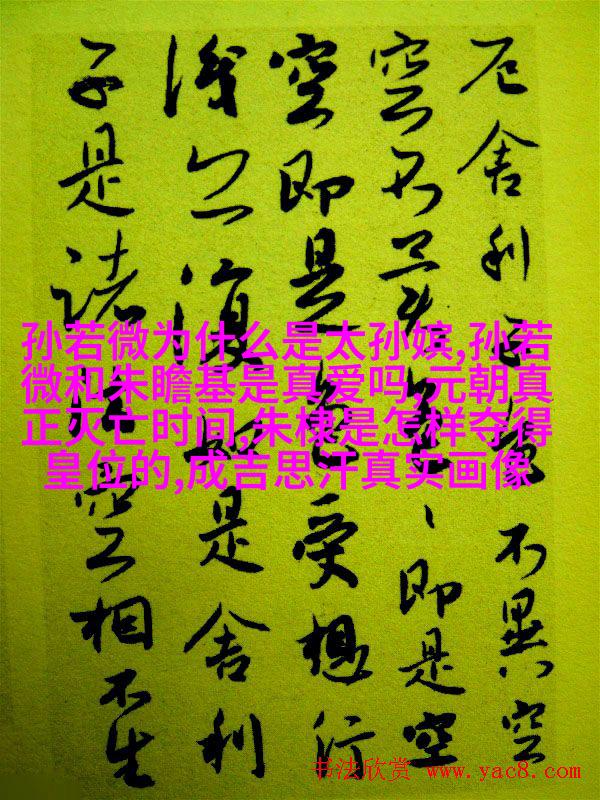 厄舍利子色不異空
空不異色、即是空
空即是色受想行
識亦復如是舍利
子是諸法空相不生
孙若微为什么是太孙嫔,孙若
微和朱瞻基是真爱吗,元朝真
正灭亡时间,朱棣是怎样夺得
皇位的,成吉思汗真实画像
书法欣赏 www.yac8.com